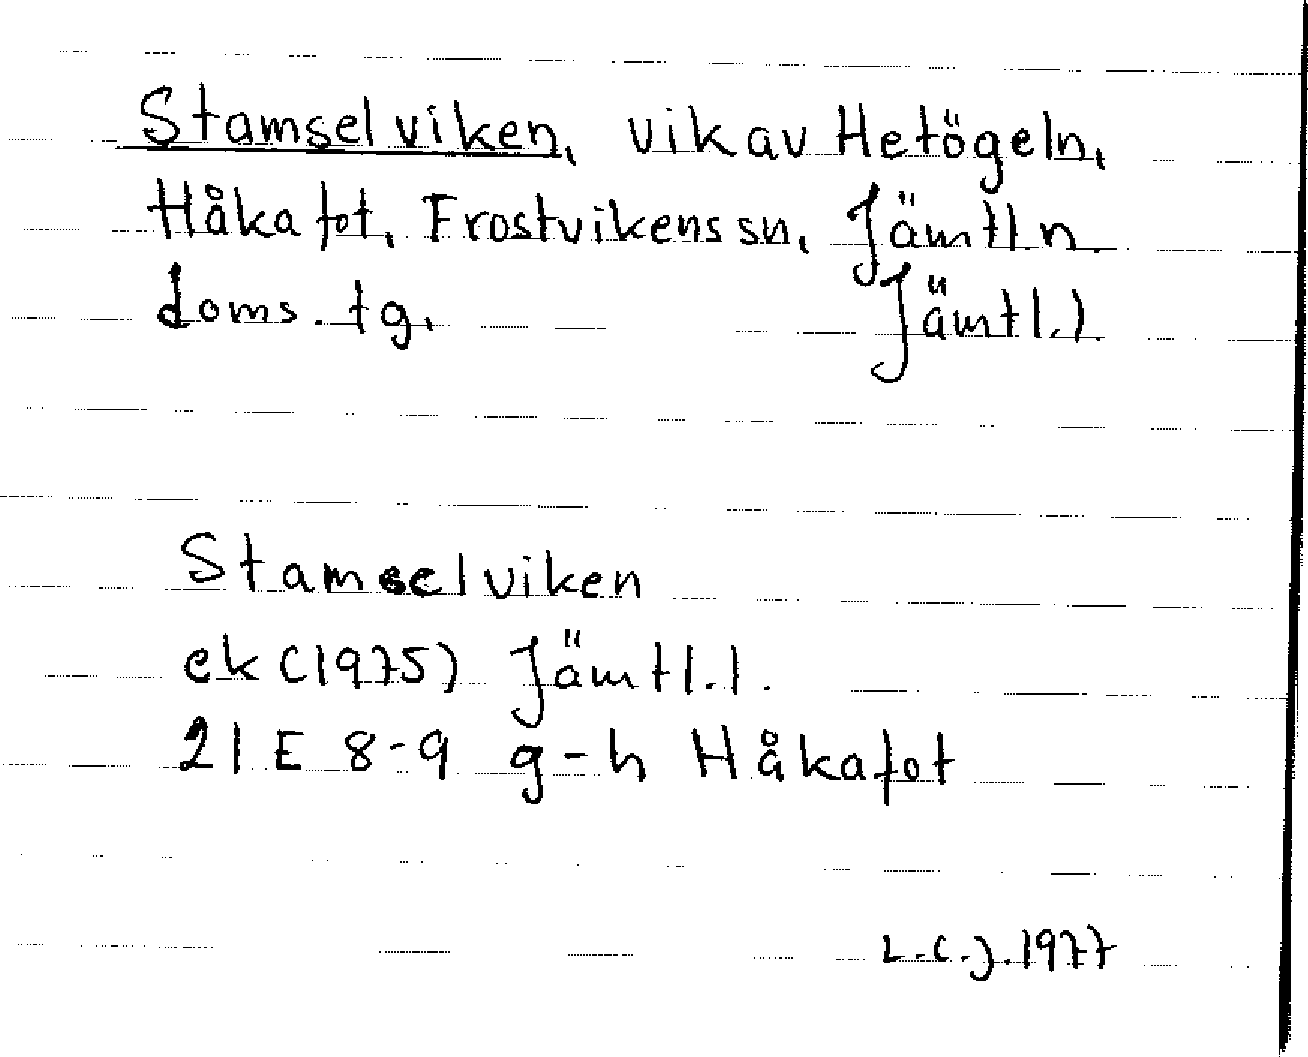 Stamselviken, vik av Hetögeln,
Håkafot, Frostvikens sn, Jämtl n
doms. tg. Jämtl.l.
Stamselviken
ek (1975) Jämtl.l.
21 E 8-9 g-h Håkafot
L.C.J. 1977